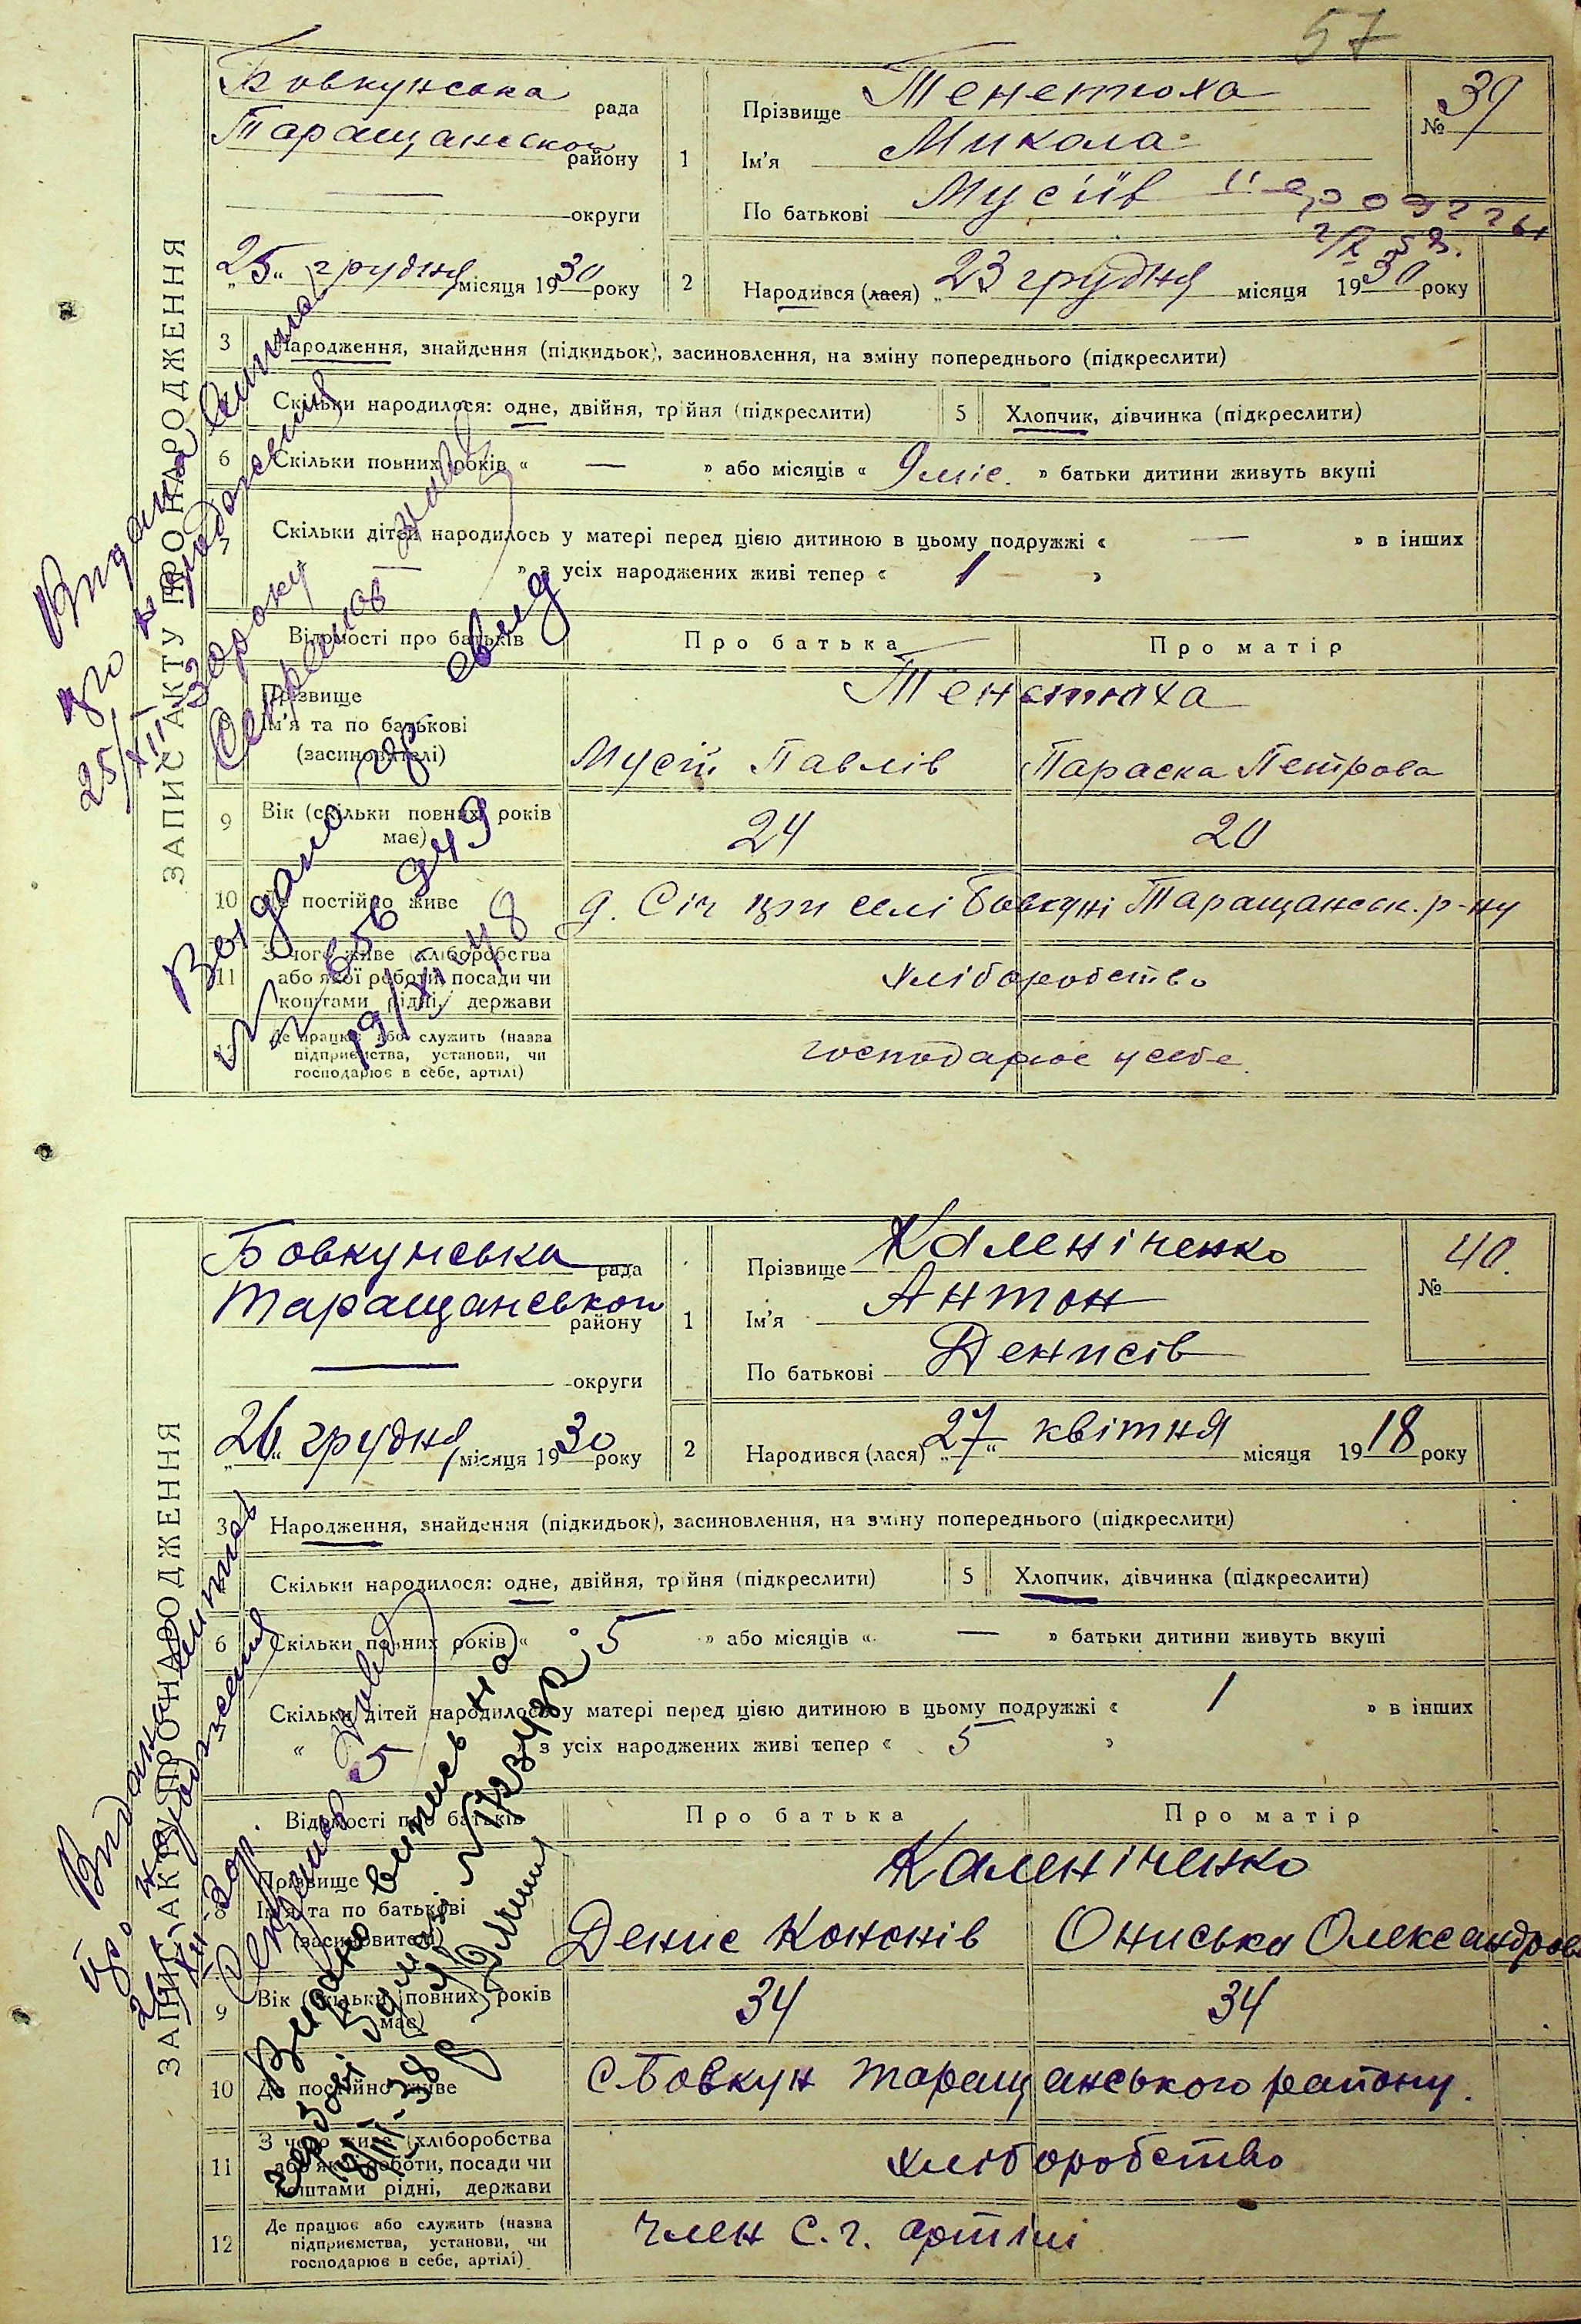 57
ЗАПИС АКТУ ПРО НАРОДЖЕННЯ
Бовкунська рада
Таращанської району
— округи
"25" грудня місяця 1930 року
1
Прізвище Тенетюха
Ім'я Микола
По батькові Мусіїв
№ 39
2
Народився (лася) "23 грудня місяця 1930 року
3 Народження, знайдення (підкидьок), засиновлення, на зміну попереднього (підкреслити)
Скільки народилося: одне, двійня, трійня (підкреслити)
5 Хлопчик, дівчинка (підкреслити)
6 Скільки повних років « — » або місяців « 9 міс. » батьки дитини живуть вкупі
7 Скільки дітей народилось у матері перед цією дитиною в цьому подружжі « — » в інших
— » з усіх народжених живі тепер « 1 »
Відомості про батьків
Про батька
Про матір
Прізвище
Ім'я та по батькові
(засиновителі)
Тенетюха
Мусій Павлів
Параска Петрова
9 Вік (скільки повних років має)
24
20
10 Де постійно живе
д. Січ при селі Бовкуні Таращанськ. р-ну
11 З чого живе (хліборобства
або якої роботи, посади чи
коштами рідні, держави
хліборобство
Де працює або служить (назва
підприємства, установи, чи
господарює в себе, артілі)
господарює у себе
Видана
25/XII 30 року
Выдано
свид
19/XI-48
ЗАПИС АКТУ ПРО НАРОДЖЕННЯ
Бовкунська рада
Таращанської району
— округи
"26" грудня місяця 1930 року
1
Прізвище Каленіченко
Ім'я Антон
По батькові Денисів
№ 40.
2
Народився (лася) "27" квітня місяця 1918 року
3 Народження, знайдення (підкидьок), засиновлення, на зміну попереднього (підкреслити)
Скільки народилося: одне, двійня, трійня (підкреслити)
5 Хлопчик, дівчинка (підкреслити)
6 Скільки повних років « 5 » або місяців « — » батьки дитини живуть вкупі
Скільки дітей народилось у матері перед цією дитиною в цьому подружжі « 1 » в інших
« 5 з усіх народжених живі тепер « 5 »
Відомості про батьків
Про батька
Про матір
8
Прізвище
Ім'я та по батькові
(засиновителі)
Каленіченко
Денис Кононів
Ониська Олександрова
9 Вік (скільки повних років має)
34
34
10 Де постійно живе
с Бовкун Таращанського району.
11 З чого живе (хліборобства
або якої роботи, посади чи
коштами рідні, держави
хліборобство
12 Де працює або служить (назва
підприємства, установи, чи
господарює в себе, артілі)
член с.г. артілі
Видана
Видано випись на